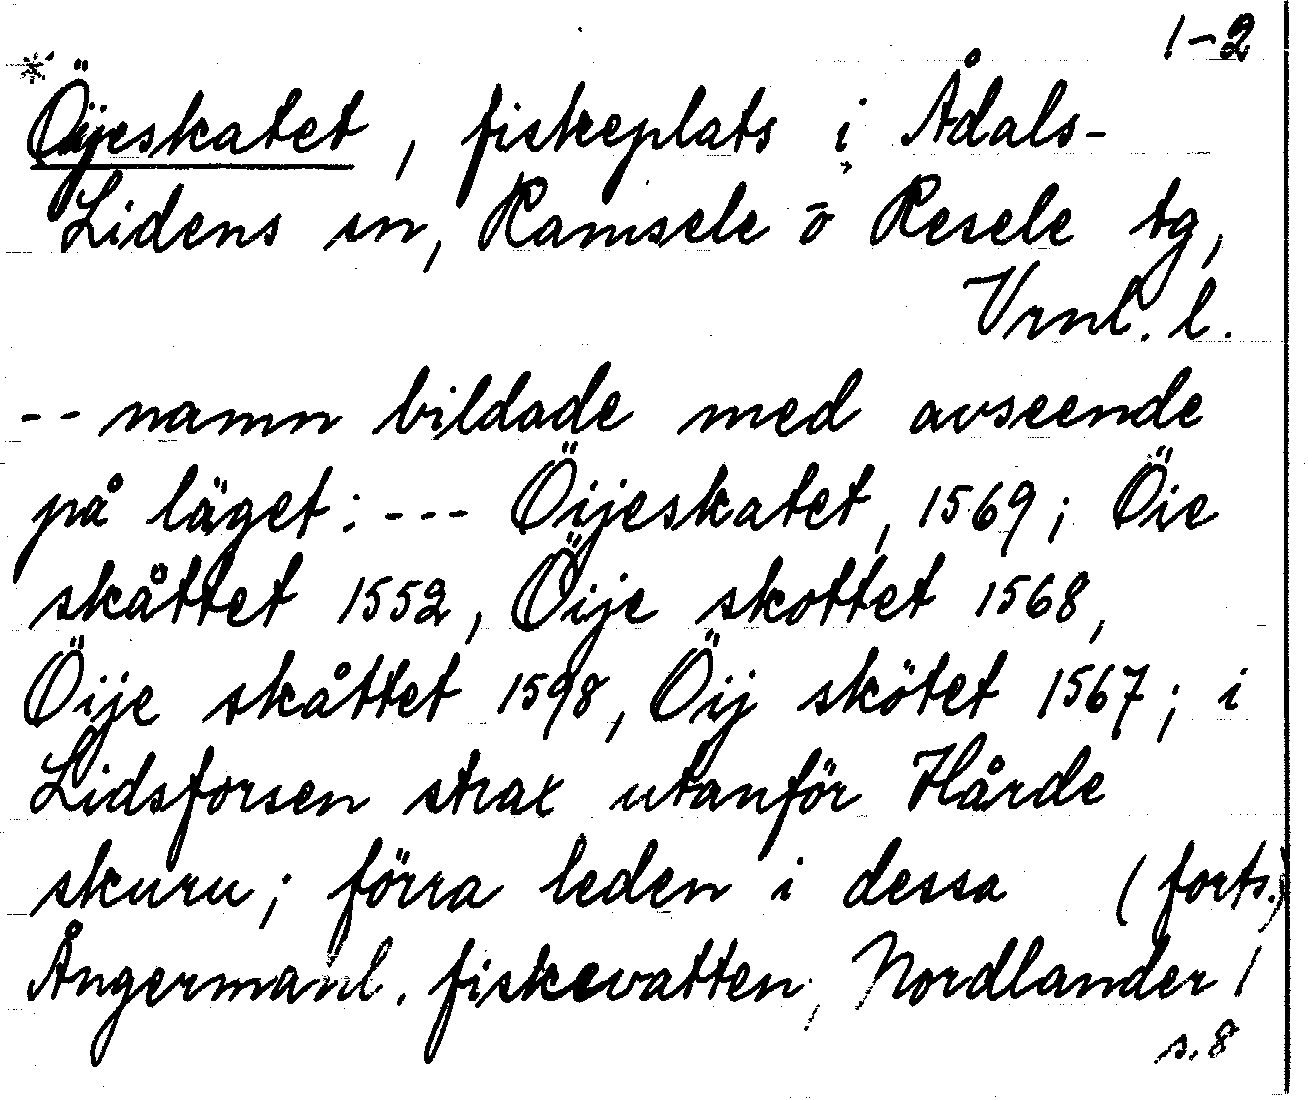 1-2
*Öijeskatet, fiskeplats i Ådals-
Lidens sn, Ramsele o Resele tg,
Vrnl. l.
-- namn bildade med avseende
på läget: --- Öijeskatet, 1569; Öie
skåttet 1552, Öije skottet 1568,
Öije skåttet 1598, Öij skötet 1567; i
Lidsforsen strax utanför Hårde
skuru; förra leden i dessa (forts.)
Ångermanl. fiskevatten, Nordlander 1
s. 8